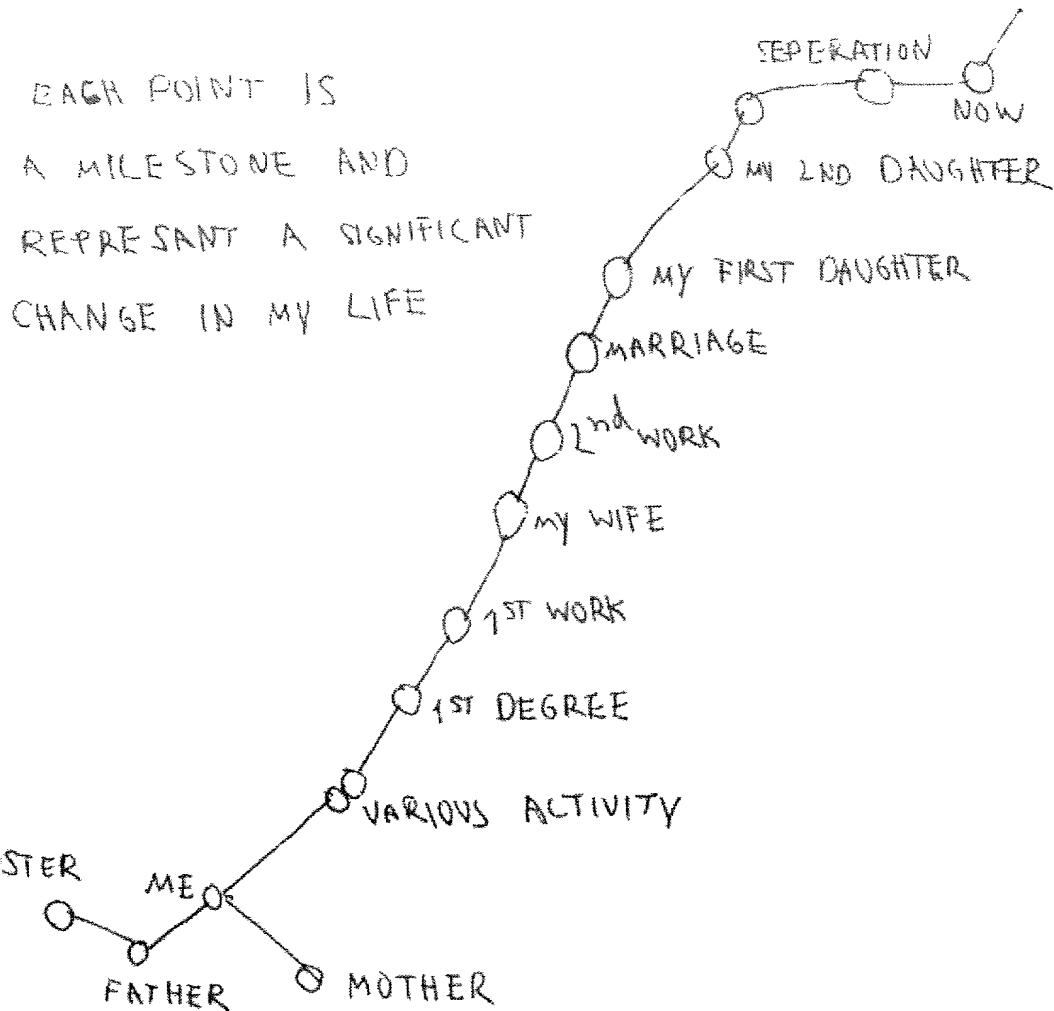 EACH POINT IS
A MILESTONE AND
REPRESANT A SIGNIFICANT
CHANGE IN MY LIFE
SEPERATION
NOW
MY 2ND DAUGHTER
MY FIRST DAUGHTER
MARRIAGE
2nd WORK
MY WIFE
1ST WORK
1ST DEGREE
VARIOUS ACTIVITY
STER
ME
FATHER
MOTHER